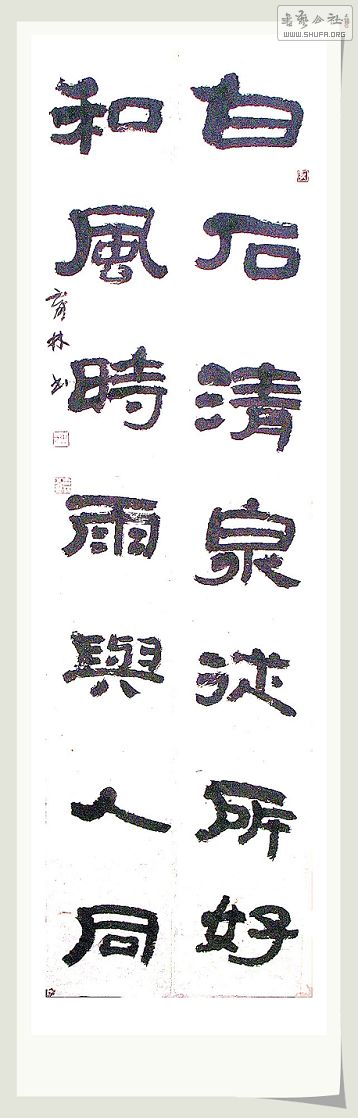 書藝公社
WWW.SHUFA.ORG
白石清泉從所好
和風時雨與人同
林书